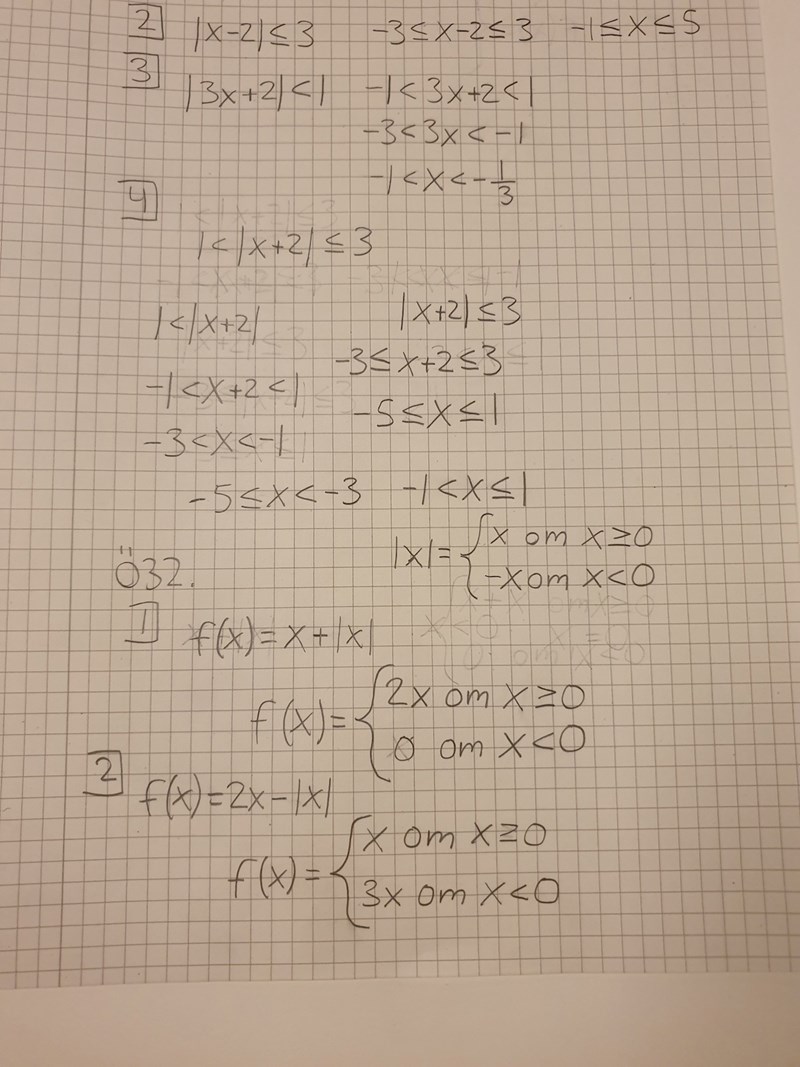 2 |x-2|≤3 -3≤x-2≤3 -1≤x≤5
3 |3x+2|<1 -1<3x+2<1
-3<3x<-1
-1<x<-1/3
4
1<|x+2|≤3
1<|x+2| |x+2|≤3
-3≤x+2≤3
-1<x+2<1
-5≤x≤1
-3<x<-1
-5≤x<-3 -1<x≤1
Ö32. |x|={x om x≥0
{-x om x<0
1 f(x)=x+|x|
f(x)={2x om x≥0
{0 om x<0
2 f(x)=2x-|x|
f(x)={x om x≥0
{3x om x<0